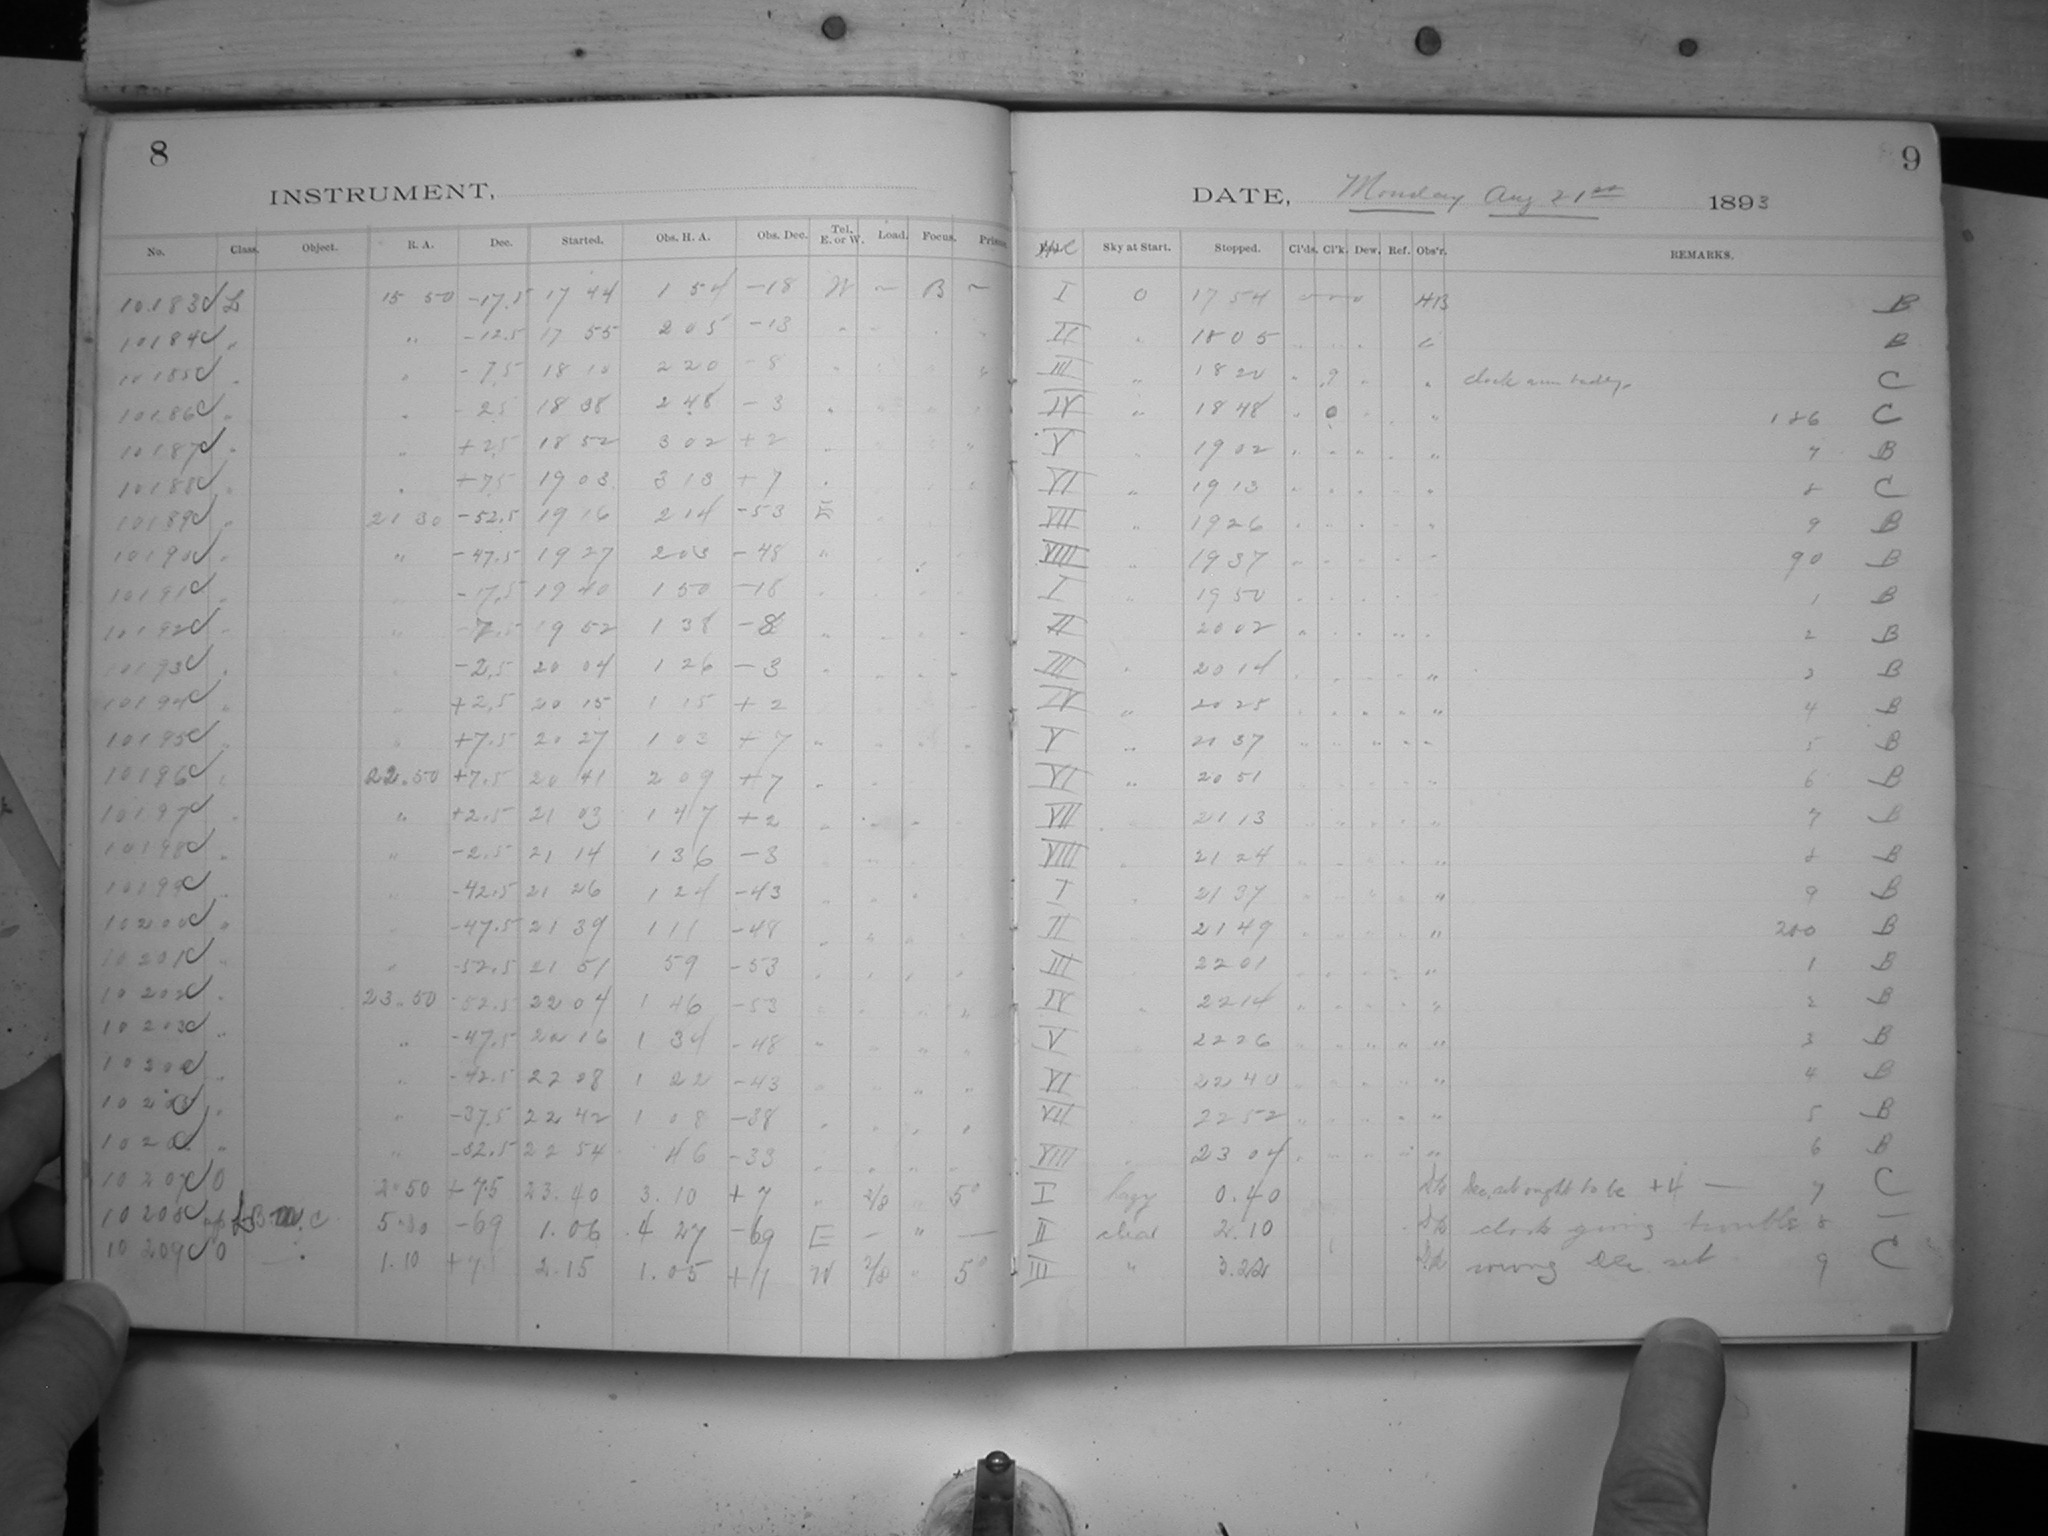 8
9
INSTRUMENT,
DATE, Monday Aug 21st 1893
No. Class. Object. R. A. Dec. Started. Obs. H. A. Obs. Dec. Tel. E. or W. Load. Focus. Sky at Start. Stopped. Cl'ds. Cl'k. Dew. Ref. Obs'r. REMARKS.
10183 15 50 -17.5 17 44 1 54 -18 W B I 0 17 54 HB B
10184 " -12.5 17 55 2 05 -13 II 18 05 " B
10185 " -7.5 18 10 2 20 -8 III " 18 20 " clock C
10186 " -2.5 18 38 2 48 -3 IV " 18 48 0 " 186 C
10187 " +2.5 18 52 3 02 +2 V 19 02 " 7 B
10188 " +7.5 19 03 3 13 +7 VI " 19 13 " 8 C
10189 21 30 -52.5 19 16 2 14 -53 E VII " 19 26 " 9 B
10190 " -47.5 19 27 2 03 -48 " VIII " 19 37 90 B
10191 -17.5 19 40 1 50 -18 I " 19 50 1 B
10192 " -7.5 19 52 1 38 -8 " II 20 02 2 B
10193 -2.5 20 04 1 26 -3 III 20 14 " 3 B
10194 +2.5 20 15 1 15 +2 IV " 20 25 " 4 B
10195 " +7.5 20 27 1 03 +7 " V " 37 " 5 B
10196 22.50 +7.5 20 41 2 09 +7 VI " 20 51 6 B
10197 " +2.5 21 03 1 47 +2 " VII 21 13 " 7 B
10198 " -2.5 21 14 1 36 -3 VIII 21 24 " 8 B
10199 -42.5 21 26 1 24 -43 I 21 37 " 9 B
10200 -47.5 21 39 1 11 -48 II 21 49 " 200 B
10201 -52.5 21 51 59 -53 III 22 01 " 1 B
10202 23.50 -52.5 22 04 1 46 -53 IV 22 14 " 2 B
10203 " -47.5 16 1 34 -48 " V 22 26 " 3 B
1020 " -42.5 22 28 1 22 -43 VI 22 40 " 4 B
1020 " -37.5 22 42 1 08 -38 VII 22 52 " 5 B
1020 " -32.5 22 54 46 -33 VIII 23 04 " 6 B
10207 O 2.50 +7.5 23.40 3.10 +7 " 2/8 5° I hazy 0.40 Dec. set ought to be +4 — 7 C
10208 -69 1.06 4 27 -69 E — " — II clear 2.10 clock giving trouble 8 —
10209 O 1.10 2.15 1.05 +11 W 2/8 " 5° III " 3.22 wrong Dec. set 9 C